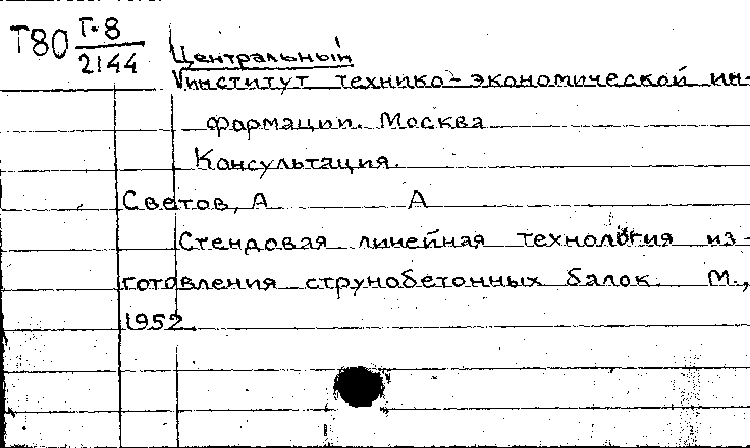 Т80 Г-8
2144
Центральный
институт технико-экономической ин-
формации. Москва
Консультация.
Светов, А А
Стендовая линейная технология из-
готовления струнобетонных балок. М.,
1952.